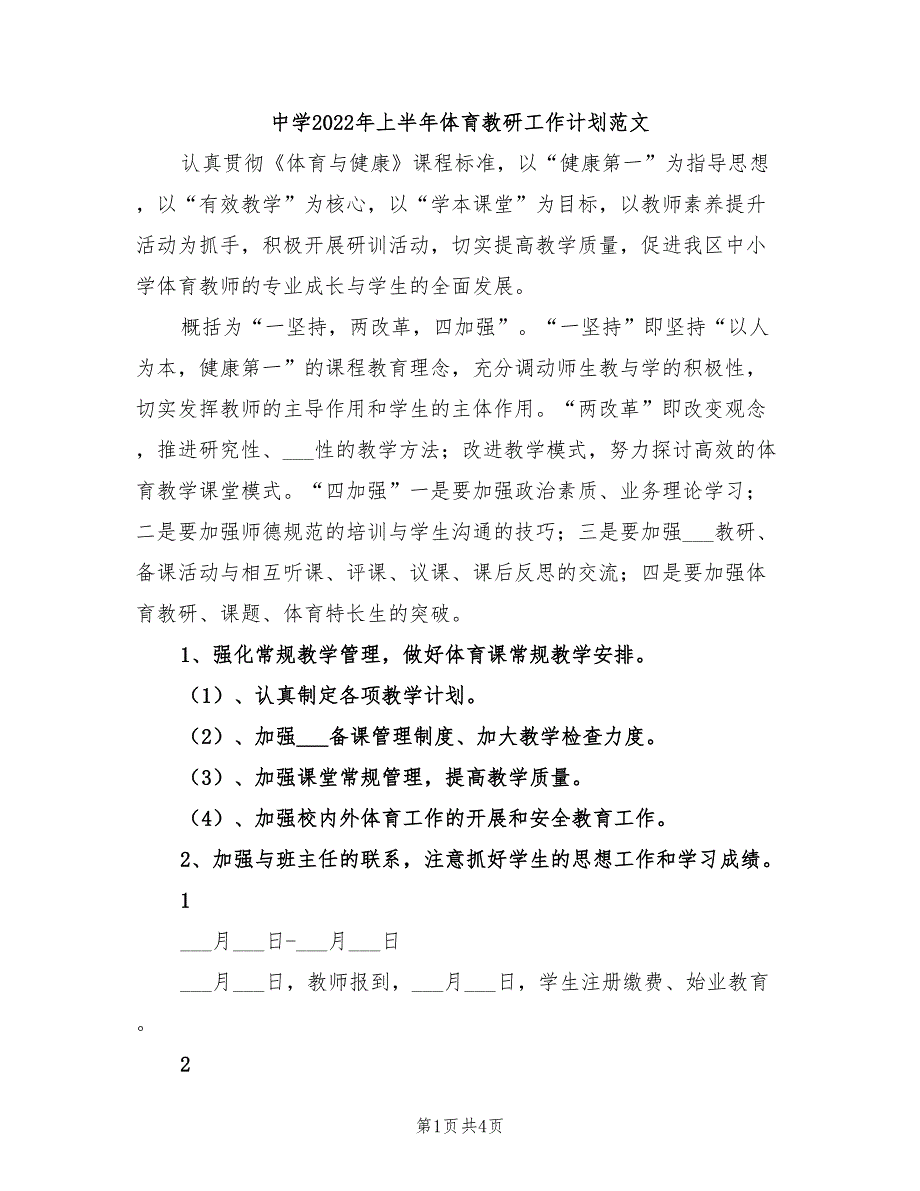 中学2022年上半年体育教研工作计划范文
认真贯彻《体育与健康》课程标准，以“健康第一”为指导思想
，以“有效教学”为核心，以“学本课堂”为目标，以教师素养提升
活动为抓手，积极开展研训活动，切实提高教学质量，促进我区中小
学体育教师的专业成长与学生的全面发展。
概括为“一坚持，两改革，四加强”。“一坚持”即坚持“以人
为本，健康第一”的课程教育理念，充分调动师生教与学的积极性，
切实发挥教师的主导作用和学生的主体作用。“两改革”即改变观念
，推进研究性、___性的教学方法；改进教学模式，努力探讨高效的体
育教学课堂模式。“四加强”一是要加强政治素质、业务理论学习；
二是要加强师德规范的培训与学生沟通的技巧；三是要加强___教研、
备课活动与相互听课、评课、议课、课后反思的交流；四是要加强体
育教研、课题、体育特长生的突破。
1、强化常规教学管理，做好体育课常规教学安排。
（1）、认真制定各项教学计划。
（2）、加强___备课管理制度、加大教学检查力度。
（3）、加强课堂常规管理，提高教学质量。
（4）、加强校内外体育工作的开展和安全教育工作。
2、加强与班主任的联系，注意抓好学生的思想工作和学习成绩。
1
___月___日-___月___日
___月___日，教师报到，___月___日，学生注册缴费、始业教育
。
2
第1页共4页